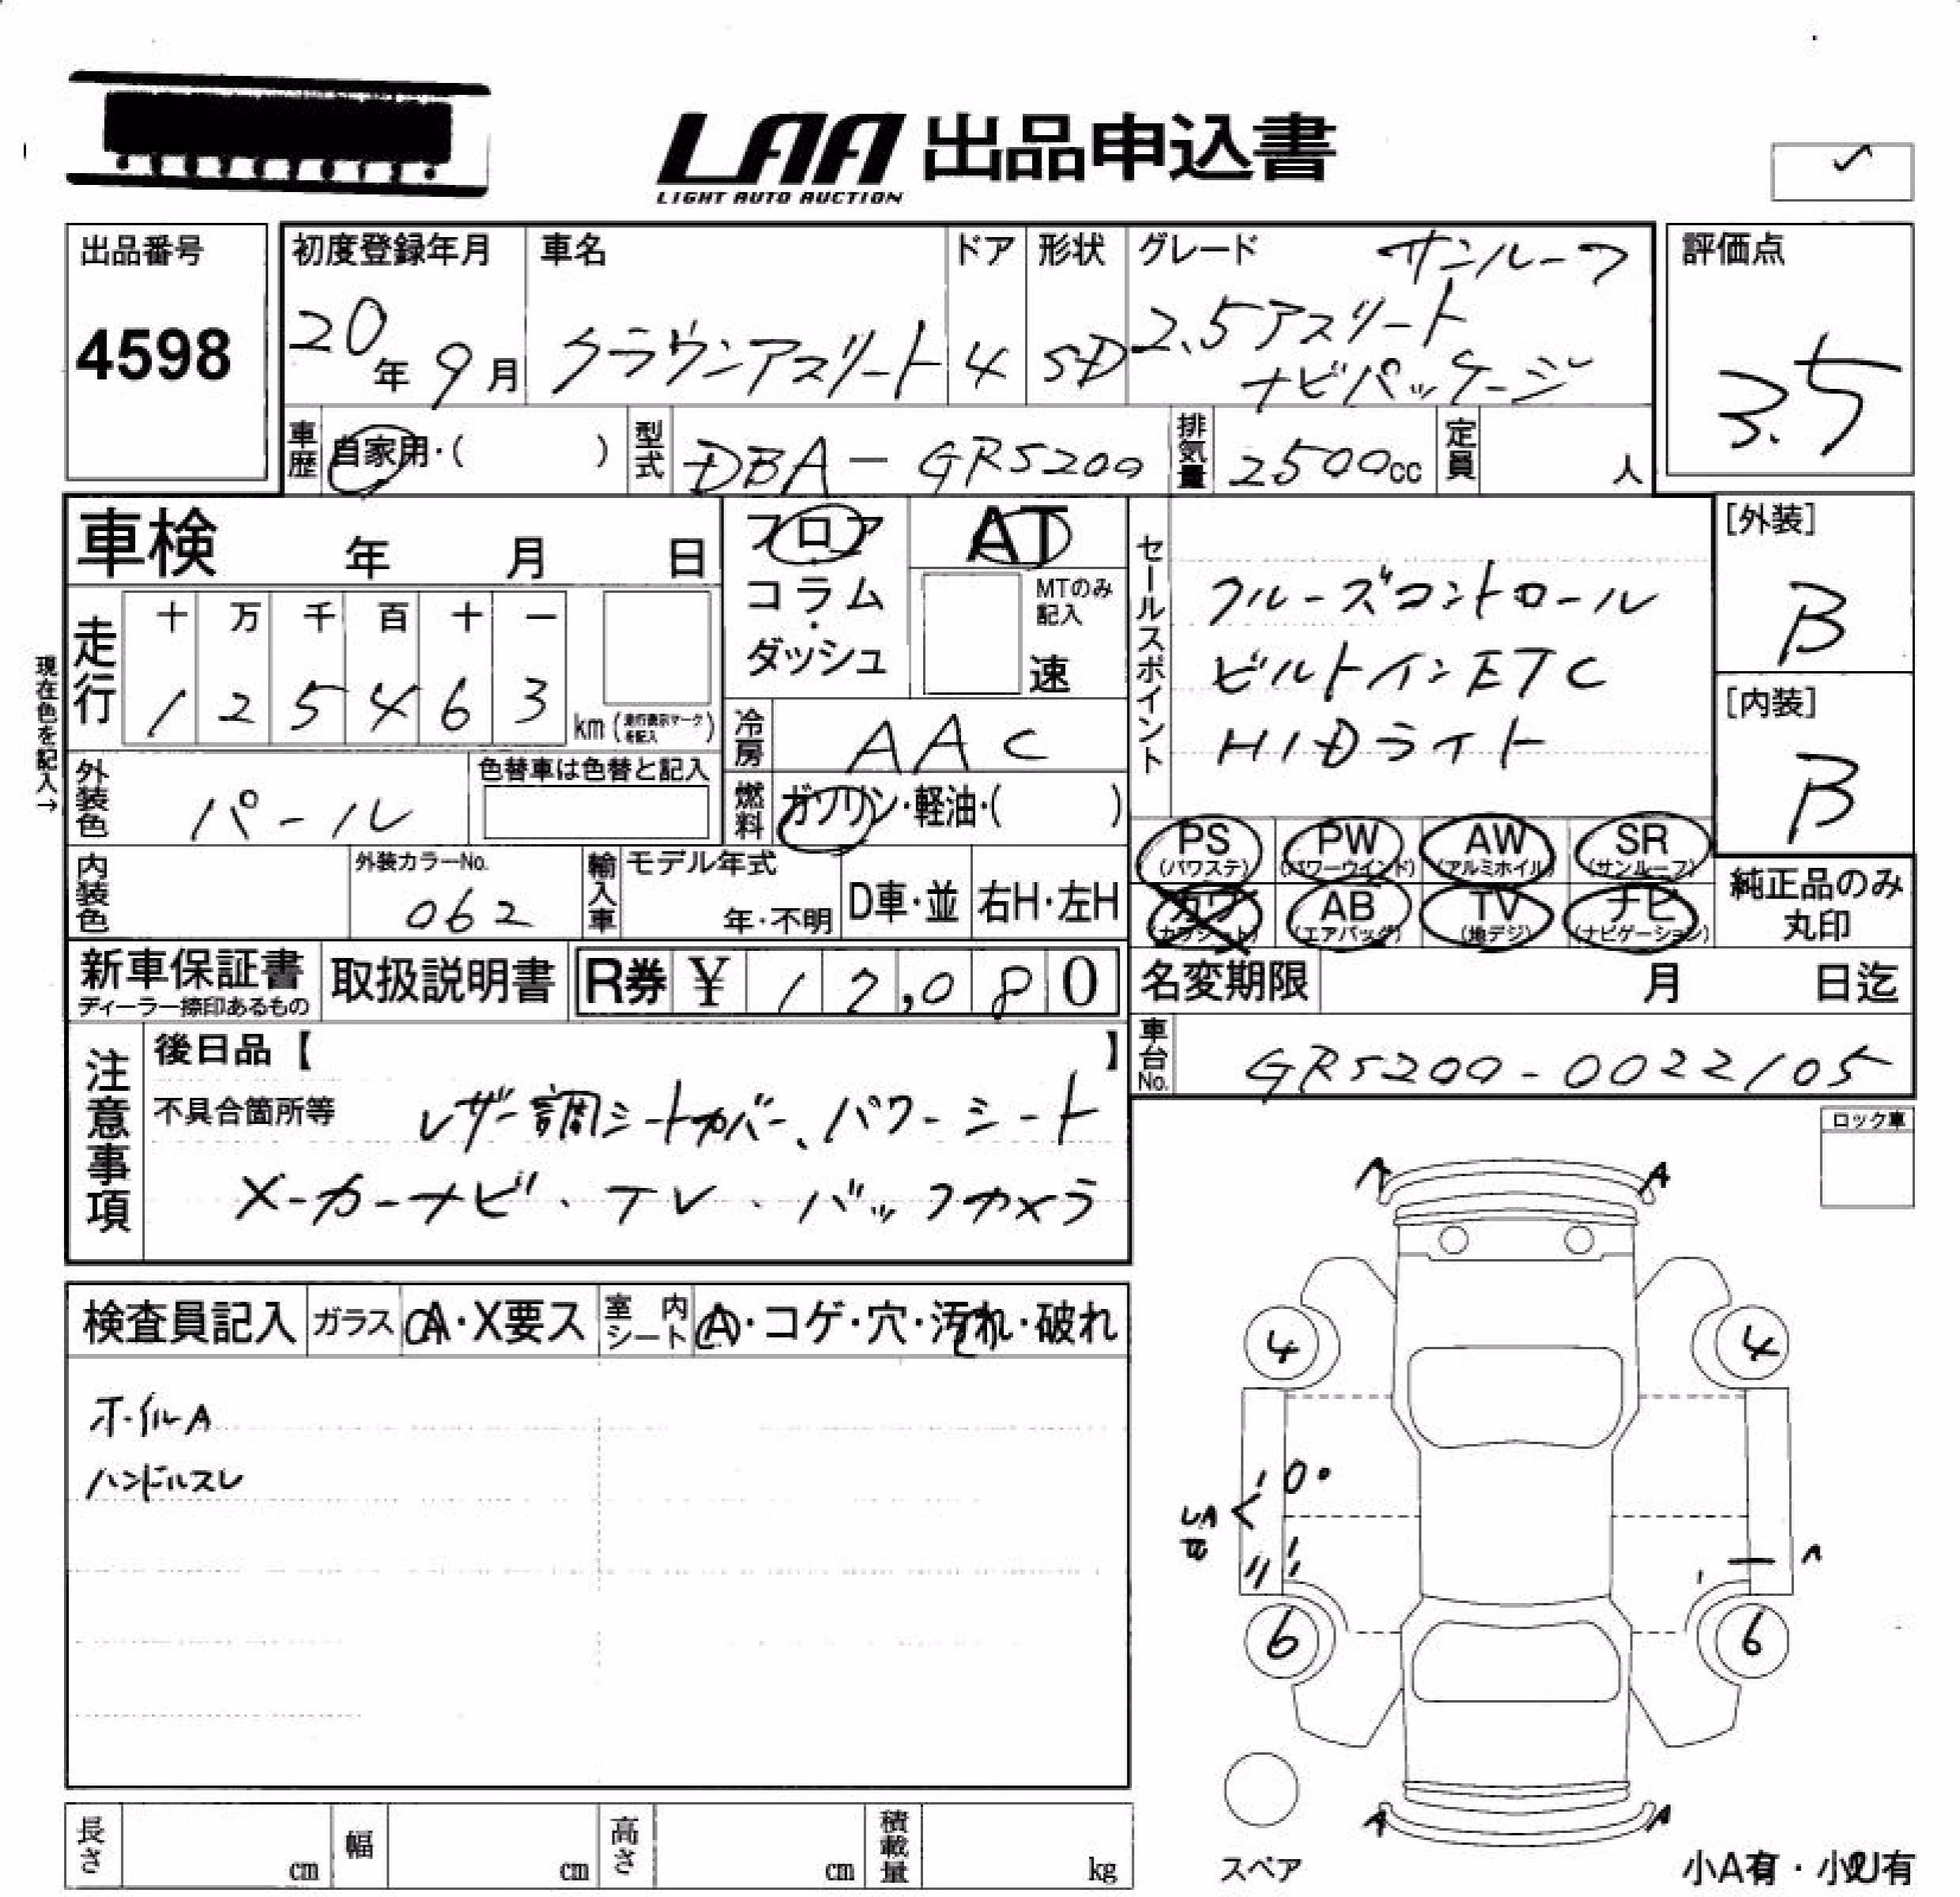 LAA 出品申込書
LIGHT AUTO AUCTION
出品番号
4598
初度登録年月
20年 9月
車名
クラウンアスリート
ドア
4
形状
SD
グレード サンルーフ
2.5アスリート
ナビパッケージ
評価点
3.5
車歴 自家用・( )
型式 DBA-GRS200
排気量 2500cc
定員 人
車検 年 月 日
フロア
コラム・
ダッシュ
AT
MTのみ
記入
速
セールスポイント
クルーズコントロール
ビルトインETC
HIDライト
[外装]
B
[内装]
B
現在色を記入→
走行
十 万 千 百 十 一
1 2 5 4 6 3 km (走行表示マークを記入)
冷房 AAC
外装色 パール
色替車は色替と記入
燃料 ガソリン・軽油・( )
PS (パワステ) PW (パワーウインド) AW (アルミホイル) SR (サンルーフ)
カワ (カワシート) AB (エアバッグ) TV (地デジ) ナビ (ナビゲーション)
純正品のみ
丸印
内装色
外装カラーNo.
062
輸入車
モデル年式
年・不明
D車・並
右H・左H
新車保証書
ディーラー捺印あるもの
取扱説明書
R券 ¥ 12,080
名変期限 月 日迄
車台No. GRS200-0022105
注意事項
後日品【 】
不具合箇所等 レザー調シートカバー、パワーシート
メーカーナビ・TV・バックカメラ
ロック車
検査員記入 ガラス A・X要ス 室内シート A・コゲ・穴・汚れ・破れ
ホイルA
ハンドルスレ
A A
4 4
A
6 6
A A
スペア
長さ cm 幅 cm 高さ cm 積載量 kg
小A有・小U有